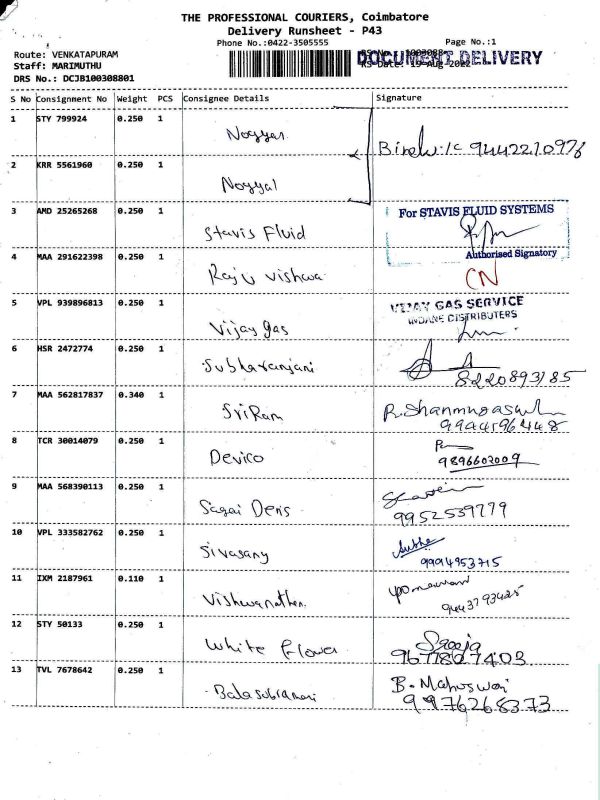 THE PROFESSIONAL COURIERS, Coimbatore
Delivery Runsheet - P43
Phone No.:0422-3505555 Page No.:1
Route: VENKATAPURAM DOCUMENT DELIVERY
Staff: MARIMUTHU
DRS No.: DCJB100308801
S No Consignment No Weight PCS Consignee Details Signature
1 STY 799924 0.250 1 Noyyal
2 KRR 5561960 0.250 1 Noyyal
9442210976
3 AMD 25265268 0.250 1 Stavis Fluid
For STAVIS FLUID SYSTEMS
Authorised Signatory
4 MAA 291622398 0.250 1 Raju vishwa CN
5 VPL 939896813 0.250 1 Vijay gas
VIJAY GAS SERVICE
INDANE DISTRIBUTERS
6 HSR 2472774 0.250 1 Subharanjani
8220893185
7 MAA 562817837 0.340 1 SriRam
9994596448
8 TCR 30014079 0.250 1 Devico
9896602009
9 MAA 568390113 0.250 1 Sagai Denis
9952539779
10 VPL 333582762 0.250 1 Sivasany
9994953715
11 IXM 2187961 0.110 1 Vishwanathan
9443793425
12 STY 50133 0.250 1 White flower Saroja
9677807403
13 TVL 7678642 0.250 1 Balasubramani B. Maheswari
9976268373